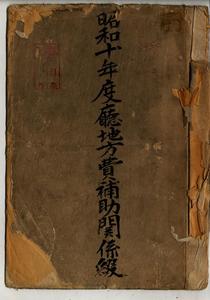 昭和十年度廳地方費補助関係綴